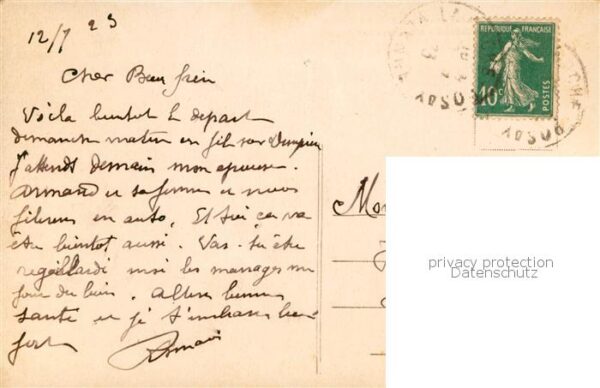 12/7 23
Cher Beau frère
Voila bientot le depart
dimanche matin on fil sur
J'attends demain mon epouse.
Armand et sa femme et nous
filerons en auto. Et toi ça va
être bientot aussi. Vas-tu être
regaillardi les massages
font du bien. Allons bonne
santé et je t'embrasse bien
fort
Romain
REPUBLIQUE FRANÇAISE
10c
POSTES
privacy protection
Datenschutz